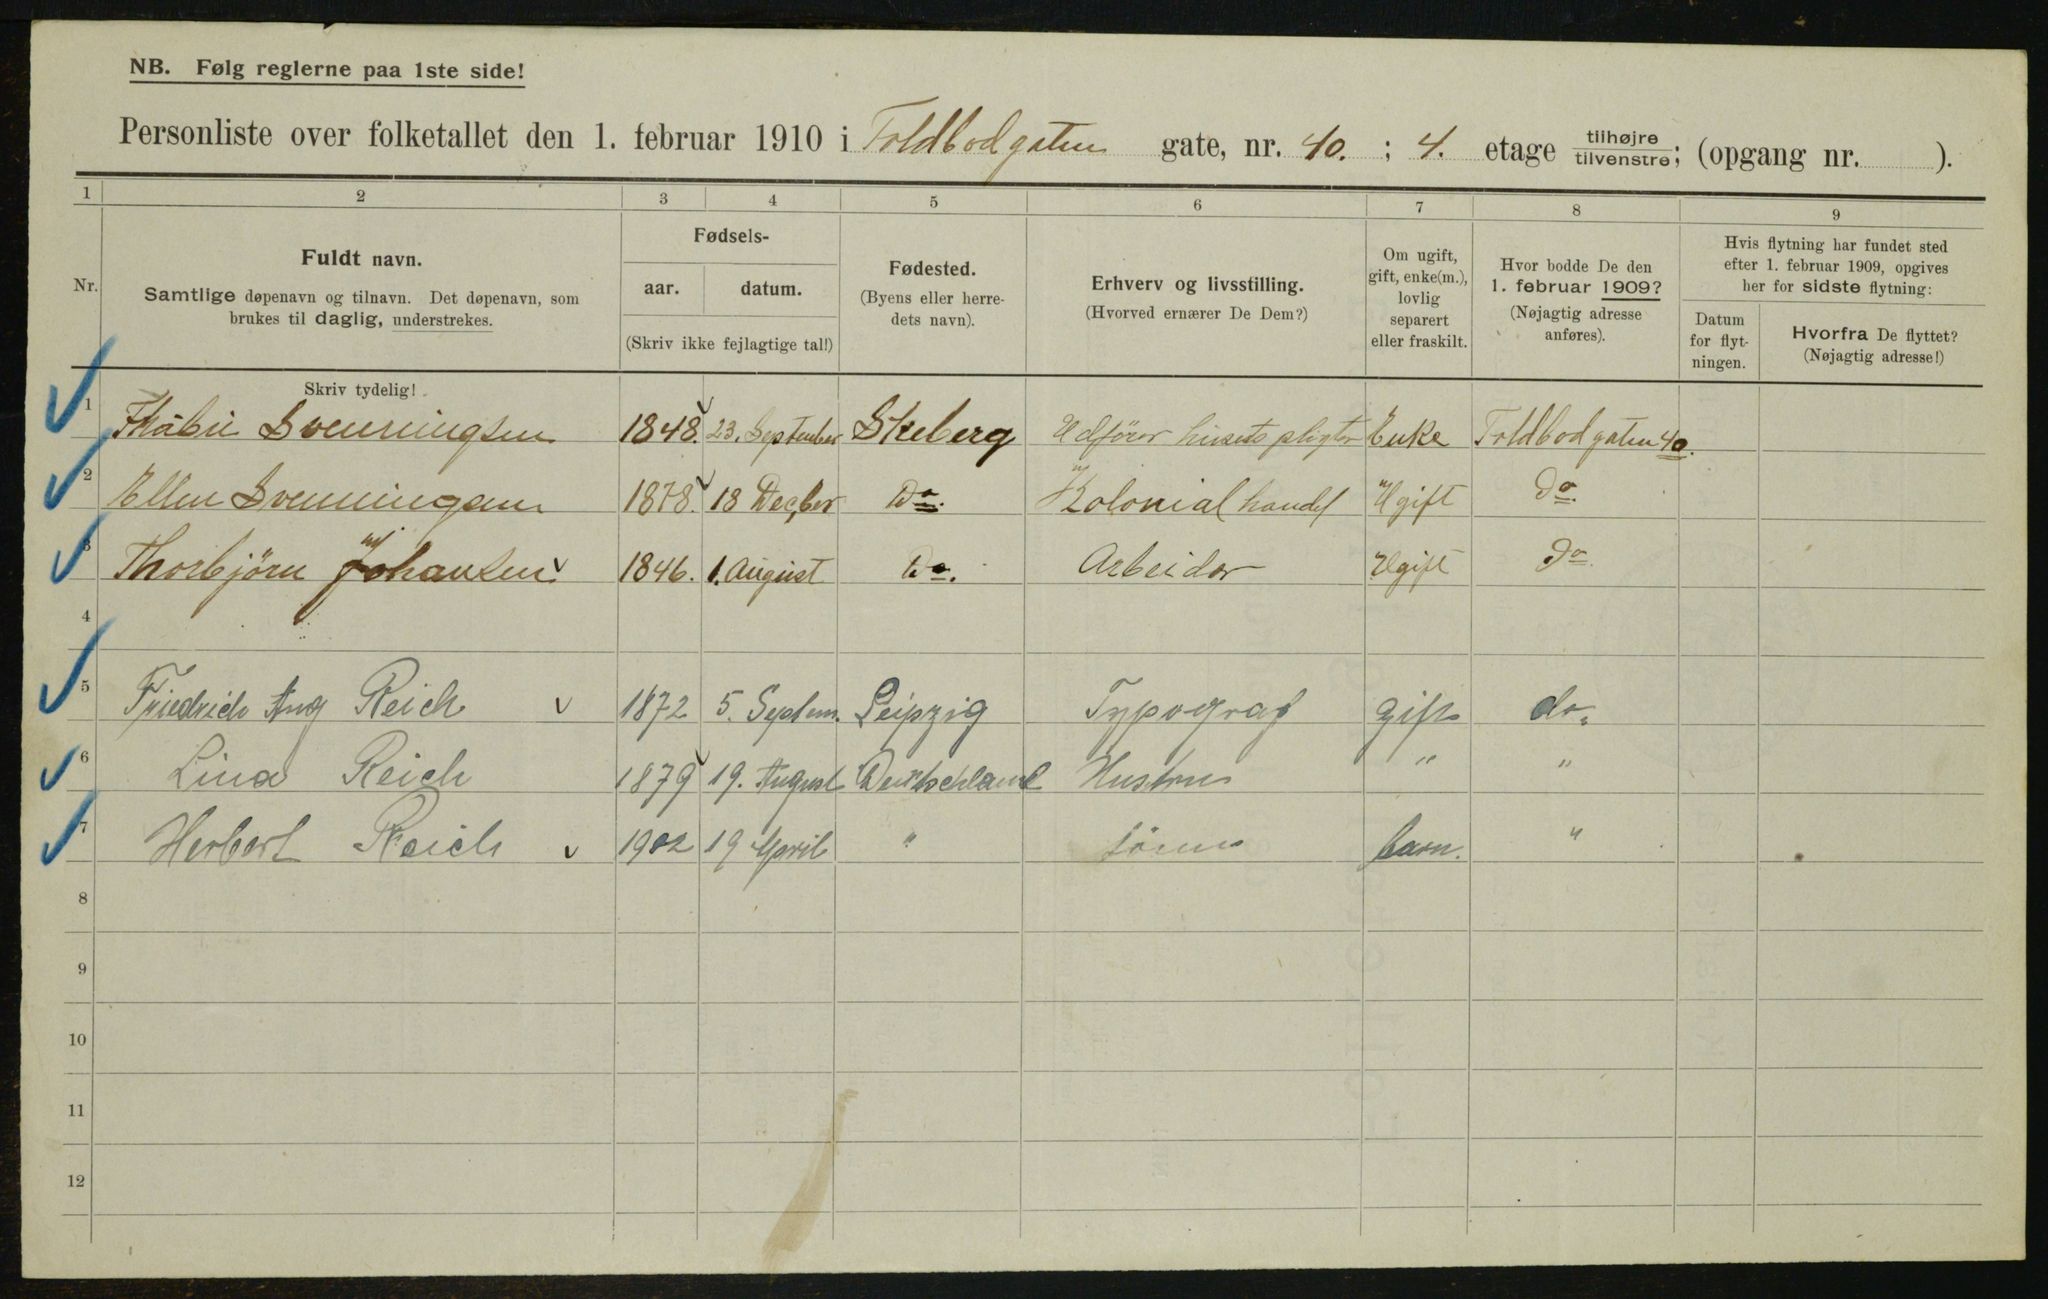 NB. Følg reglerne paa 1ste side!
Personliste over folketallet den 1. februar 1910 i Toldbodgaten gate, nr. 40. ; 4. etage tilhøjre tilvenstre; (opgang nr. ).
1 2 3 4 5 6 7 8 9
Nr.
Fuldt navn.
Samtlige døpenavn og tilnavn. Det døpenavn, som
brukes til daglig, understrekes.
Fødsels-
aar. datum.
(Skriv ikke fejlagtige tal!)
Fødested.
(Byens eller herre-
dets navn).
Erhverv og livsstilling.
(Hvorved ernærer De Dem?)
Om ugift,
gift, enke(m.),
lovlig
separert
eller fraskilt.
Hvor bodde De den
1. februar 1909?
(Nøjagtig adresse
anføres).
Hvis flytning har fundet sted
efter 1. februar 1909, opgives
her for sidste flytning:
Datum
for flyt-
ningen.
Hvorfra De flyttet?
(Nøjagtig adresse!)
Skriv tydelig!
1 Svenningsen 1848. 23. September Skeberg Udförer husets pligter Enke Toldbodgaten 40.
2 Ellen Svenningsen 1878. 18 Decber Do. Kolonial handel Ugift Do.
3 Thorbjörn Johansen 1846. 1. August Do. Arbeider Ugift Do.
4
5 Friedrich Aug Reich 1872 5. Septem. Leipzig Typograf gift do.
6 Lina Reich 1879 19. August Deutschland Hustru " "
7 Herbert Reich 1902 19 April " sönn barn. "
8
9
10
11
12